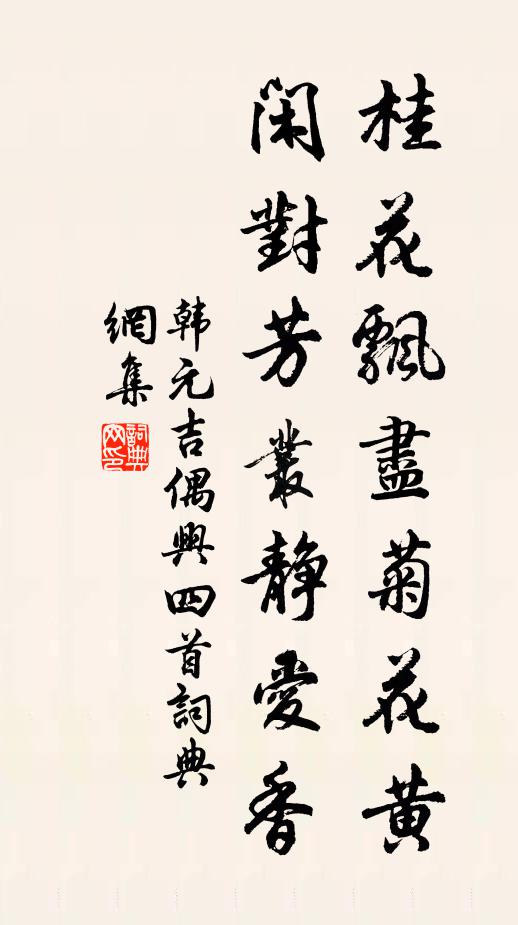 桂花飄盡菊花黄
閑對芳叢靜愛香
韩元吉偶興四首詞典
網集
詞典网印